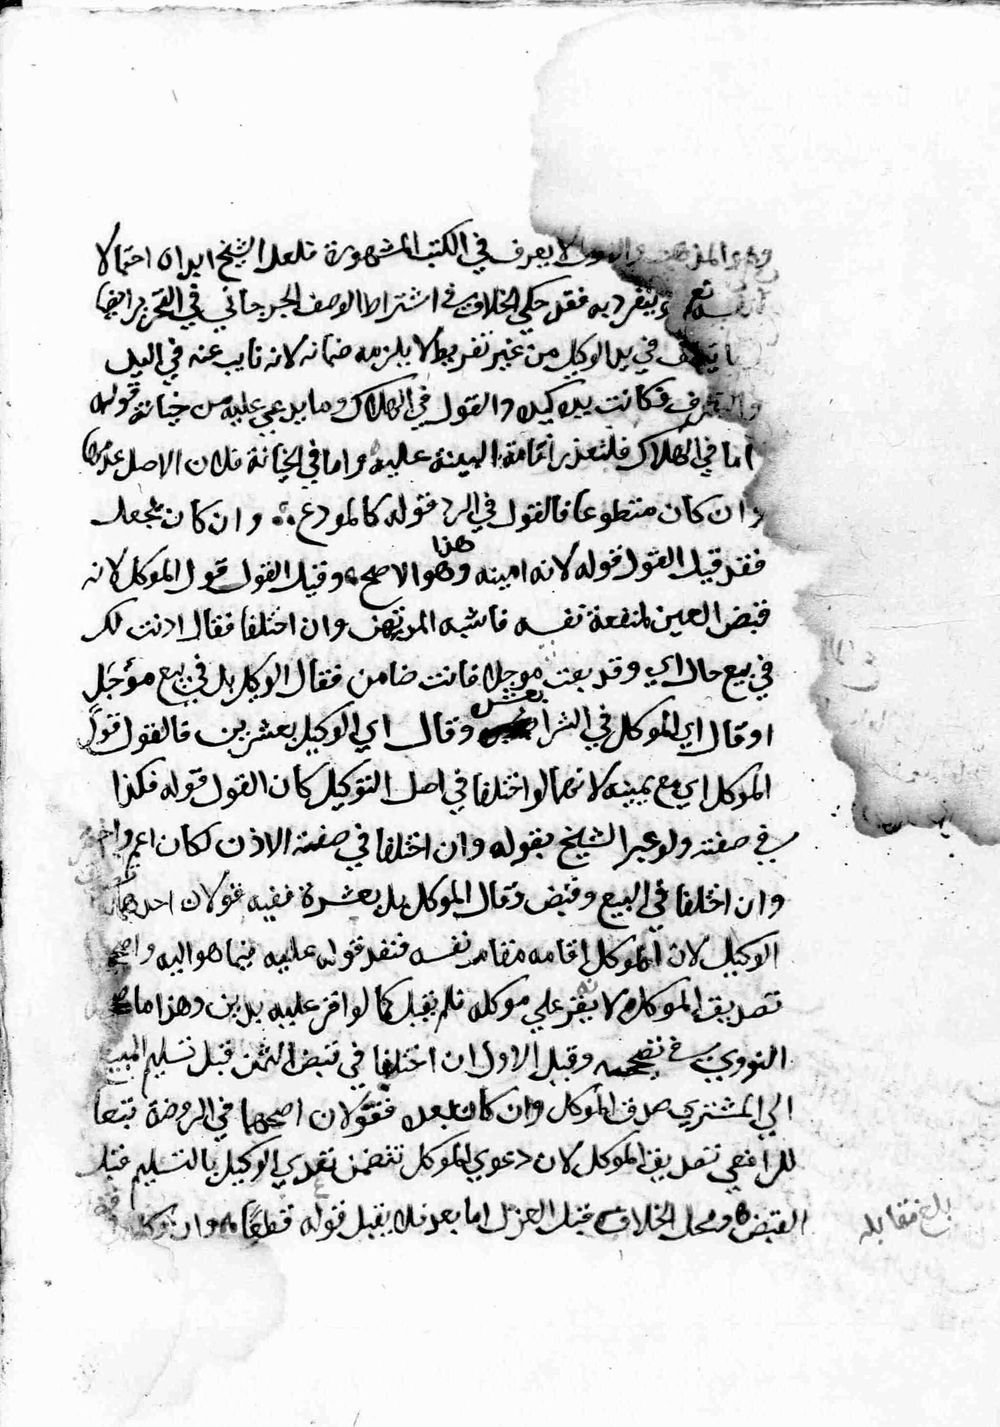 لا يعرف في الكتب المشهورة فلعل الشيخ ابداه احتمالا
نعم ينفرد به فقد حكي الخلاف في اشتراط الوصف الجرجاني في التحرير ايضا
في يد الوكيل من غير تفريط لا يلزمه ضمانه لانه نايب عنه في اليد
فكانت يده كيده والقول في الهلاك وما يدعي عليه من خيانة قوله
اما في الهلاك فلتعذر اقامة البينة عليه واما في الخيانة فلان الاصل عدمها
وان كان متطوعا فالقول في الرد قوله كالمودع وان كان بجعل
فقد قيل القول قوله لانه امينه وهذا هو الاصح وقيل القول قول الموكل لانه
قبض العين لمنفعة نفسه فاشبه المرتهن وان اختلفا فقال اذنت لك
في بيع حال اي وقد بعت موجلا فانت ضامن فقال الوكيل بل في بيع مؤجل
او قال اي الموكل في الشرا بعشرة وقال اي الوكيل بعشرين فالقول قول
الموكل اي مع يمينه لانهما لو اختلفا في اصل التوكيل كان القول قوله فكذا
في صفته ولو عبر الشيخ بقوله وان اختلفا في صفة الاذن لكان اعم
وان اختلفا في البيع وقبض وقال الموكل بل بعشرة ففيه قولان احدهما
الوكيل لان الموكل اقامه مقام نفسه فنفذ قوله عليه فيما هو اليه
تصديق الموكل لانه يقر علي موكله فلم يقبل كما لو اقر عليه بدين وهذا ما
النووي في تصحيحه وقيل الاول ان اختلفا في قبض الثمن قبل تسليم المبيع
الي المشتري صدق الموكل وان كان بعده فقولان اصحهما في الروضة تبعا
للرافعي تصديق الموكل لان دعوي الموكل تتضمن تعدي الوكيل بالتسليم قبل
القبض ومحل الخلاف قبل العزل اما بعد فلا يقبل قوله قطعا وان وكله
بلغ مقابله